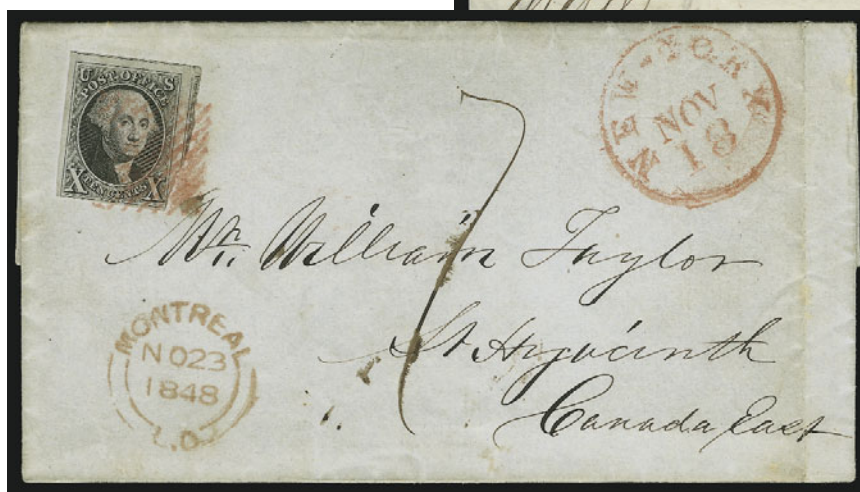 U S
POST OFFICE
X TEN CENTS X
NEW-YORK
NOV
18
7
Mr. William Taylor
St Hyacinth
Canada East
MONTREAL
NO23
1848
L.C.